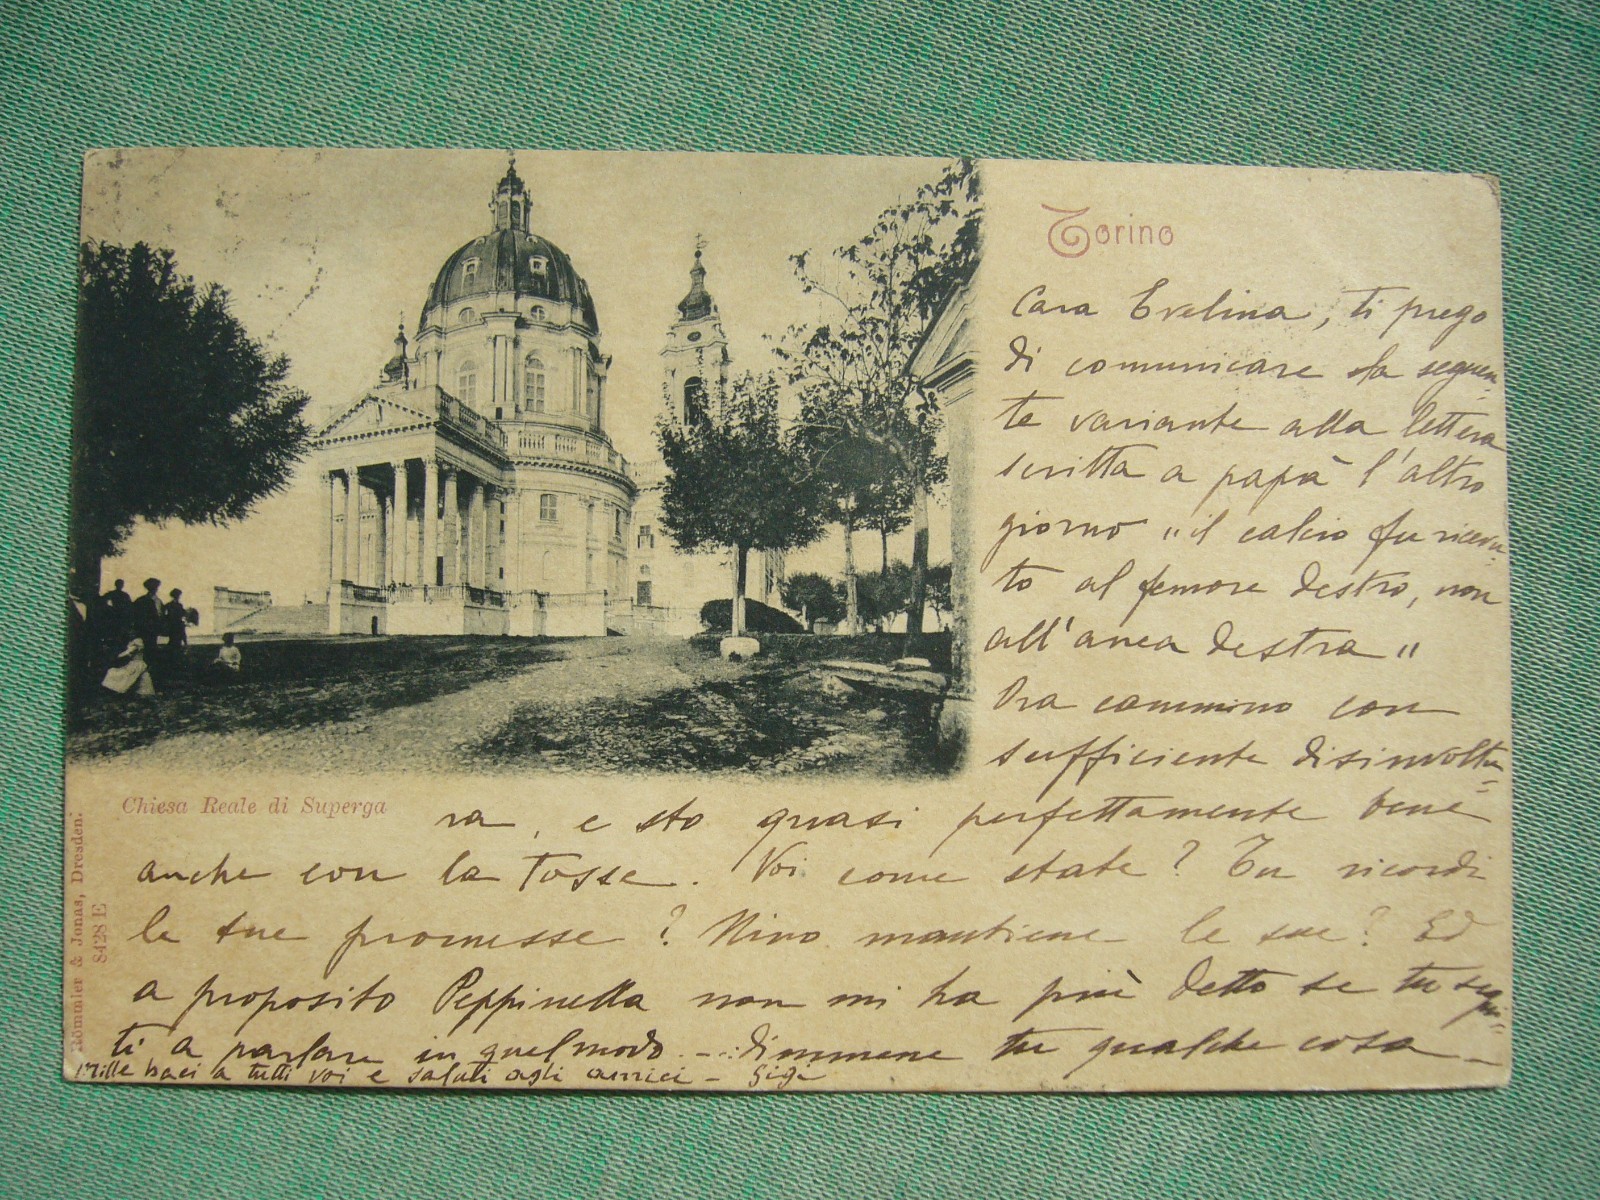 Torino
Cara Evelina, ti prego
di comunicare la seguen-
te variante alla lettera
scritta a papà l'altro
giorno "il calcio fu ricevu-
to al femore destro, non
all'anca destra"
Ora cammino con
sufficiente disinvoltu-
Chiesa Reale di Superga
ra, e sto quasi perfettamente bene
anche con la tosse. Voi come state? Tu ricordi
le tue promesse? Nino mantiene le sue? Ed
a proposito Peppinella non mi ha più detto se tu segui-
ti a parlare in quel modo --: dimmene tu qualche cosa -
Mille baci a tutti voi e saluti agli amici - Gigi
Römmler & Jonas, Dresden.
8428 E